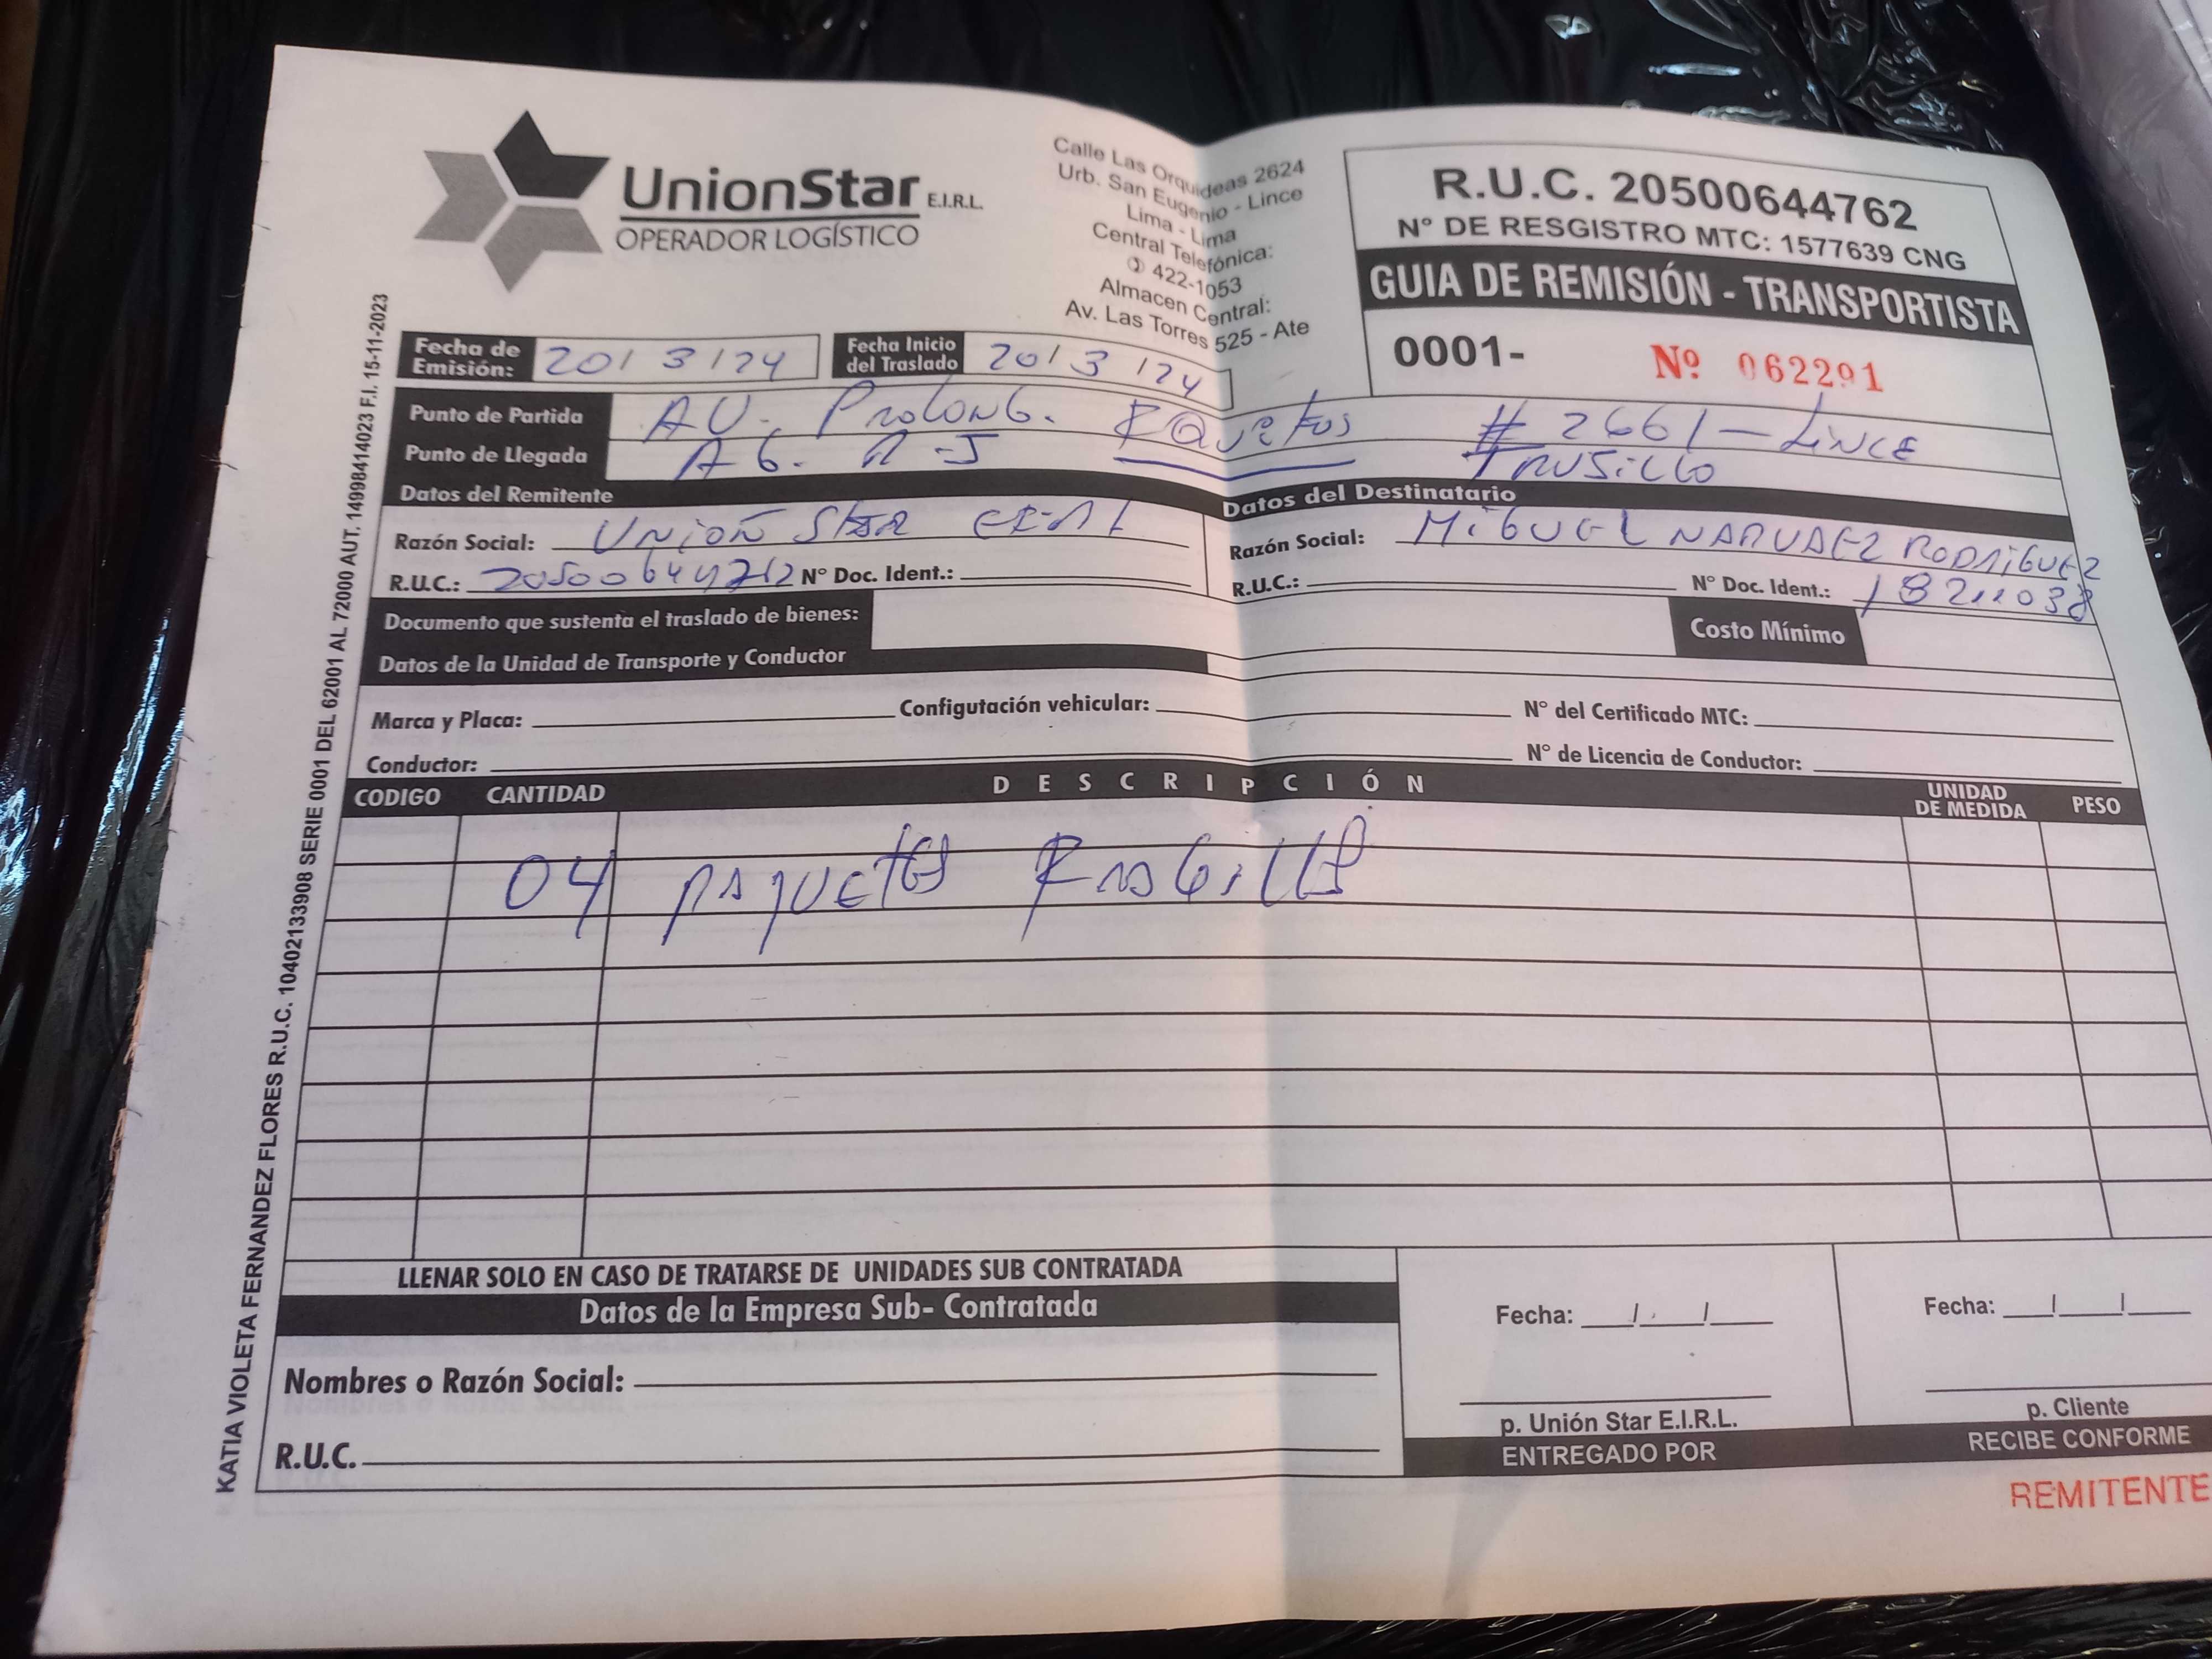 UnionStar E.I.R.L.
OPERADOR LOGÍSTICO
Calle Las Orquideas 2624
Urb. San Eugenio - Lince
Lima - Lima
Central Telefónica:
422-1053
Almacen Central:
Av. Las Torres 525 - Ate
R.U.C. 20500644762
N° DE RESGISTRO MTC: 1577639 CNG
GUIA DE REMISIÓN - TRANSPORTISTA
0001- Nº 062291
Fecha de Emisión: 20/3/24 Fecha Inicio del Traslado 20/3/24
Punto de Partida AV. Prolong. # 2661 - Lince
Punto de Llegada AG. Trusillo
Datos del Remitente
Razón Social: Union Star
R.U.C.: N° Doc. Ident.:
Datos del Destinatario
Razón Social: Miguel Narvaez Rodriguez
R.U.C.: N° Doc. Ident.: 18211038
Documento que sustenta el traslado de bienes:
Costo Mínimo
Datos de la Unidad de Transporte y Conductor
Marca y Placa: Configutación vehicular: N° del Certificado MTC:
Conductor: N° de Licencia de Conductor:
CODIGO CANTIDAD DESCRIPCIÓN UNIDAD DE MEDIDA PESO
04 paquetes
LLENAR SOLO EN CASO DE TRATARSE DE UNIDADES SUB CONTRATADA
Datos de la Empresa Sub- Contratada
Nombres o Razón Social:
R.U.C.
Fecha: __/__/__
p. Unión Star E.I.R.L.
ENTREGADO POR
Fecha: __/__/__
p. Cliente
RECIBE CONFORME
REMITENTE
KATIA VIOLETA FERNANDEZ FLORES R.U.C. 10402133908 SERIE 0001 DEL 62001 AL 72000 AUT. 14998414023 F.I. 15-11-2023